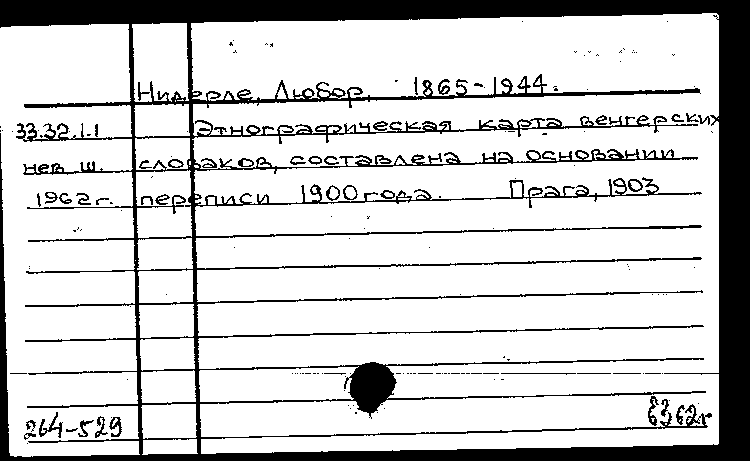 Нидерле, Любор, 1865-1944.
33.32.1.1 Этнографическая карта венгерских
нев ш. словаков, составлена на основании
1962г. переписи 1900 года. Прага, 1903
264-529